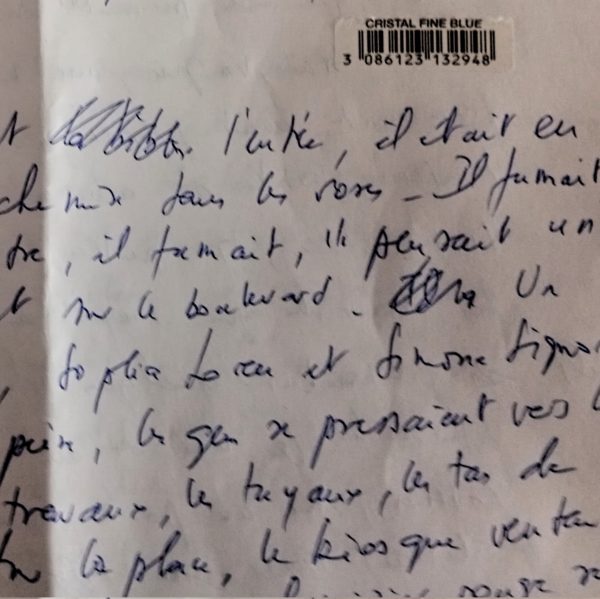 CRISTAL FINE BLUE
3 086123 132948
l'entrée, il était en
dans les roses - Il fumait
il fumait, il pensait un
sur le boulevard. Un
Sophia Loren et Simone Signo
les gens se pressaient vers
travaux, les tuyaux, les tas de
la place, le kiosque
rouge